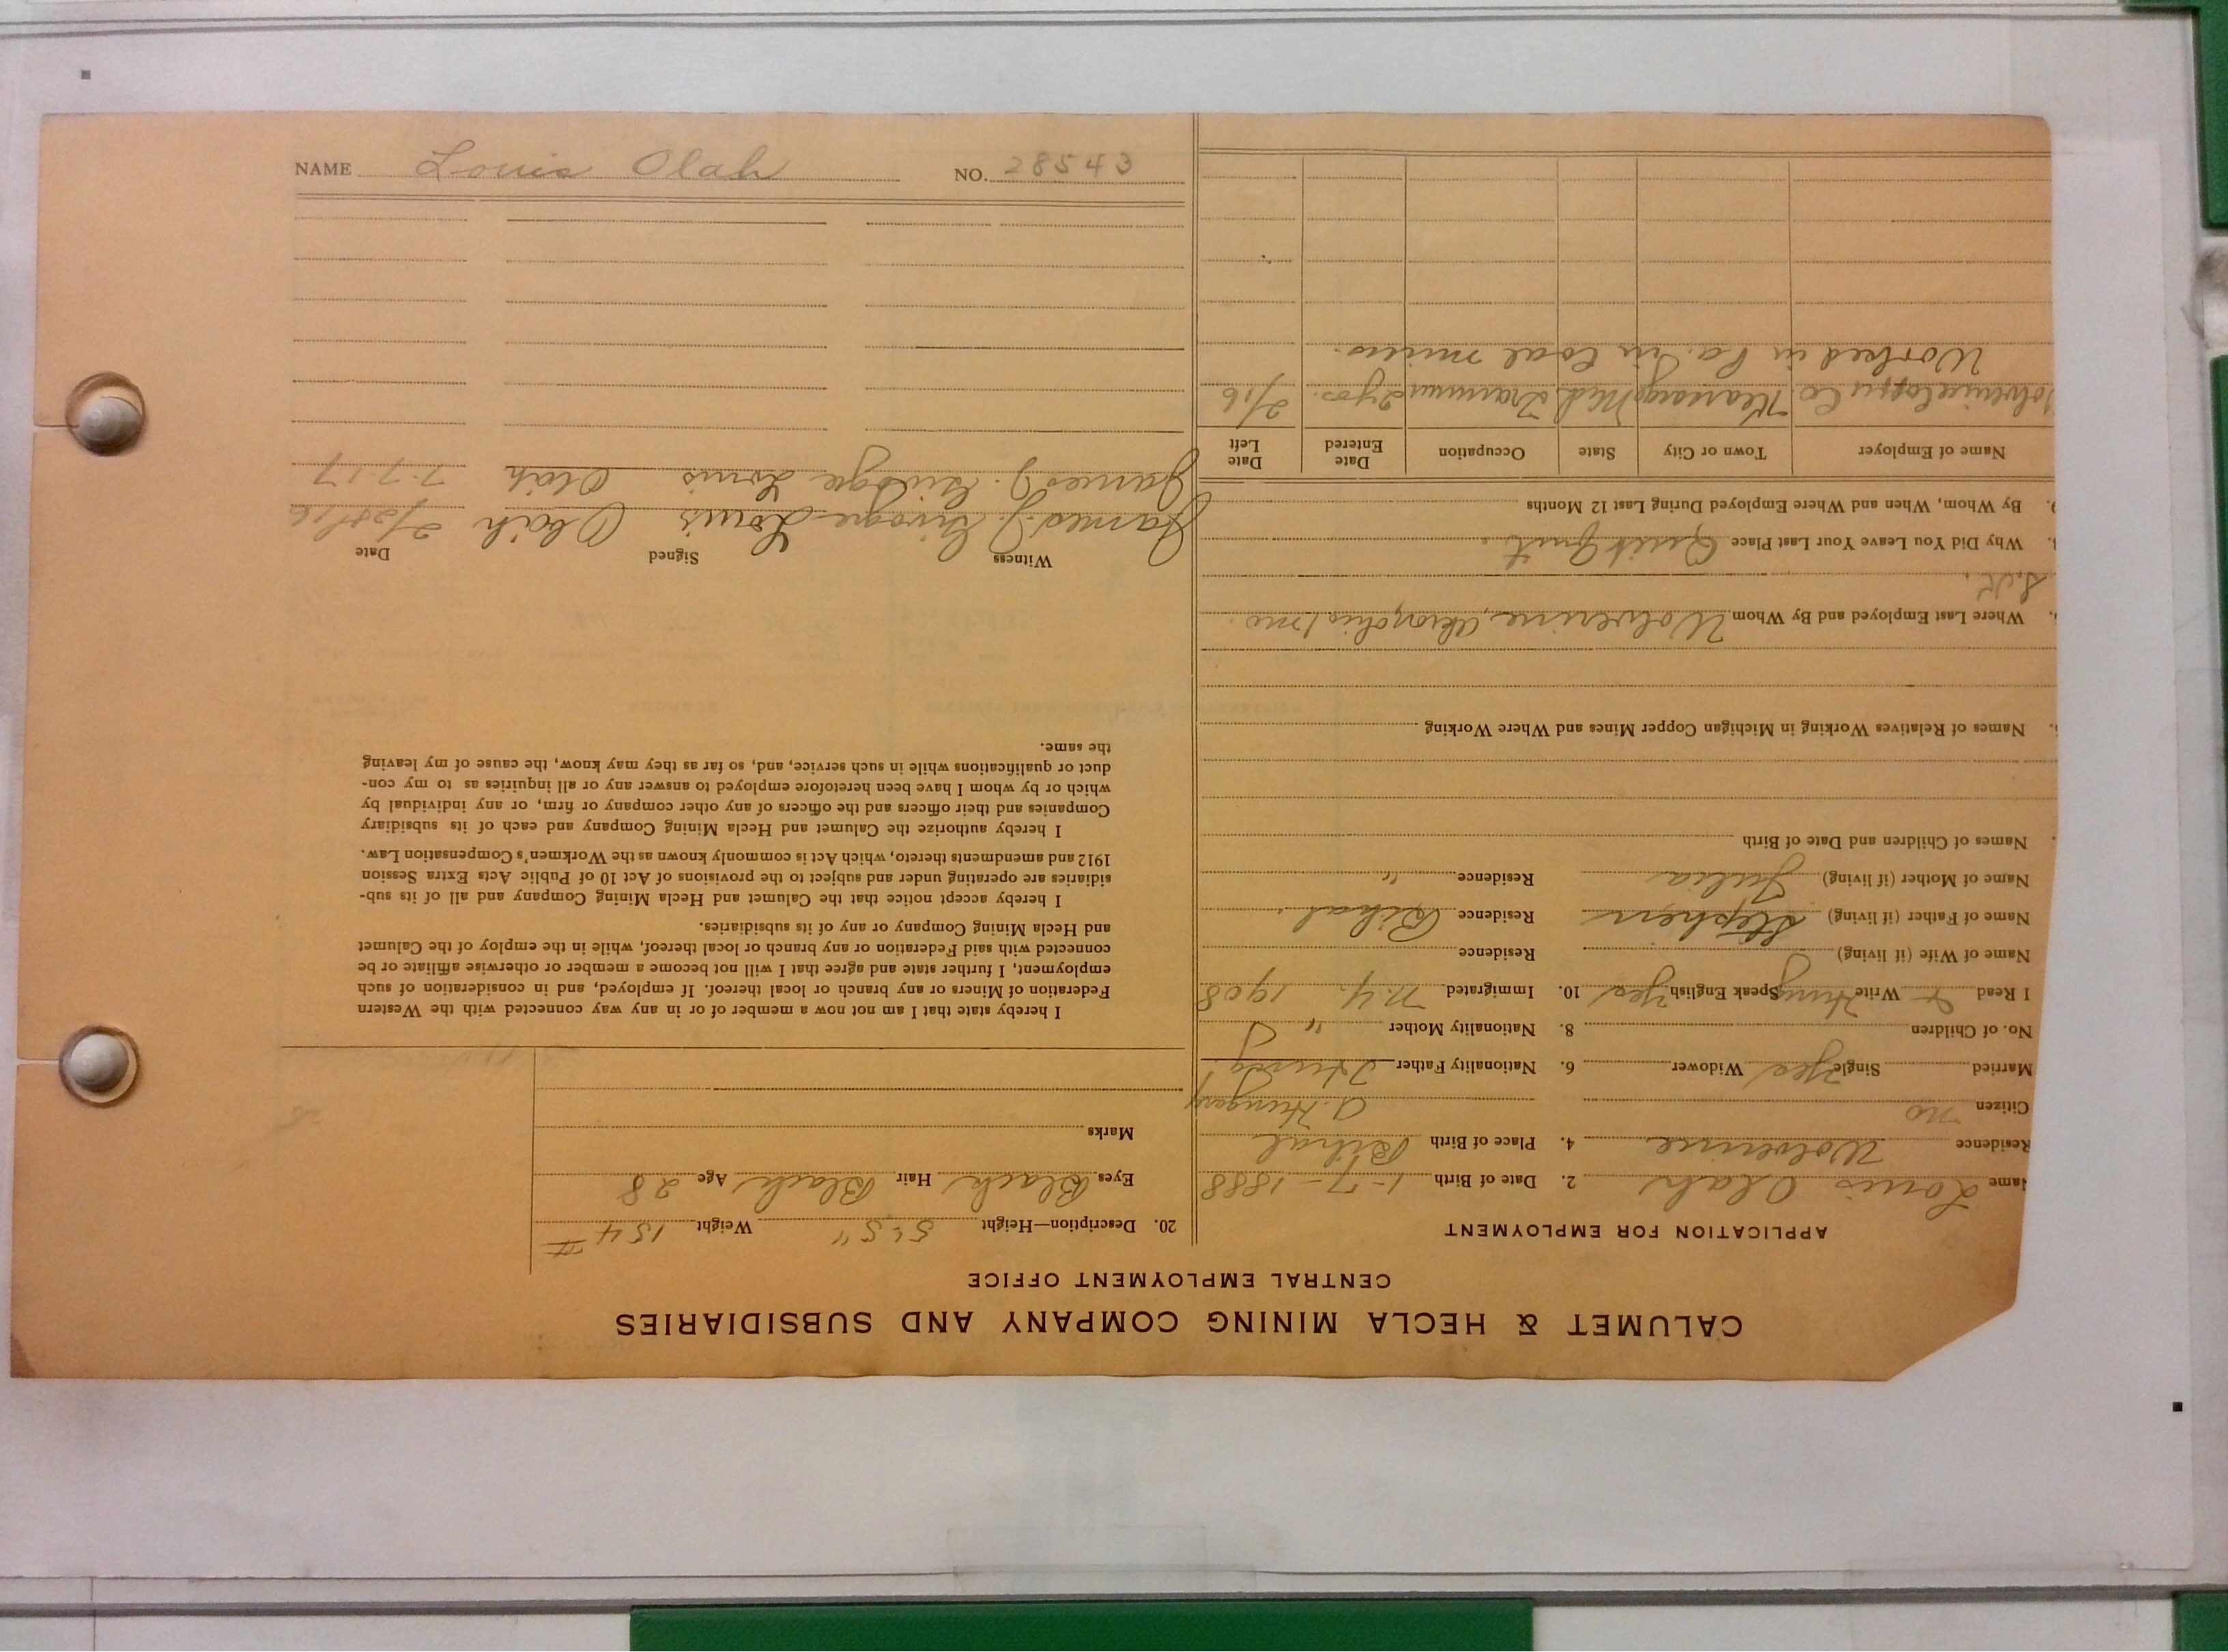 CALUMET & HECLA MINING COMPANY AND SUBSIDIARIES
CENTRAL EMPLOYMENT OFFICE
APPLICATION FOR EMPLOYMENT
Name Louis Olah 2. Date of Birth 1-7-1888
Residence Wolverine 4. Place of Birth Bihal
Citizen no A. Hungary
Married Single Yes Widower 6. Nationality Father Hung
No. of Children 8. Nationality Mother "
I Read & Write Hung Speak English Yes 10. Immigrated N.Y. 1908
Name of Wife (if living) Residence
Name of Father (if living) Stephen Residence Bihal
Name of Mother (if living) Julia Residence "
Names of Children and Date of Birth
Names of Relatives Working in Michigan Copper Mines and Where Working
Where Last Employed and By Whom Wolverine,
Why Did You Leave Your Last Place Quit Just.
9. By Whom, When and Where Employed During Last 12 Months
Name of Employer Town or City State Occupation Date Entered Date Left
Wolverine Copper Co. Kearsarge Mich Trammer 2 yrs. 2/16
Worked in Pa. in Coal mines.
20. Description—Height 5'-5" Weight 154 #
Eyes Black Hair Black Age 28
Marks
I hereby state that I am not now a member of or in any way connected with the Western
Federation of Miners or any branch or local thereof. If employed, and in consideration of such
employment, I further state and agree that I will not become a member or otherwise affiliate or be
connected with said Federation or any branch or local thereof, while in the employ of the Calumet
and Hecla Mining Company or any of its subsidiaries.
I hereby accept notice that the Calumet and Hecla Mining Company and all of its sub-
sidiaries are operating under and subject to the provisions of Act 10 of Public Acts Extra Session
1912 and amendments thereto, which Act is commonly known as the Workmen's Compensation Law.
I hereby authorize the Calumet and Hecla Mining Company and each of its subsidiary
Companies and their officers and the officers of any other company or firm, or any individual by
which or by whom I have been heretofore employed to answer any or all inquiries as to my con-
duct or qualifications while in such service, and, so far as they may know, the cause of my leaving
the same.
Witness Signed Date
James J. Louis Oláh 2/28/16
James J. Louis Oláh 7-7-17
NAME Louis Olah NO. 28543